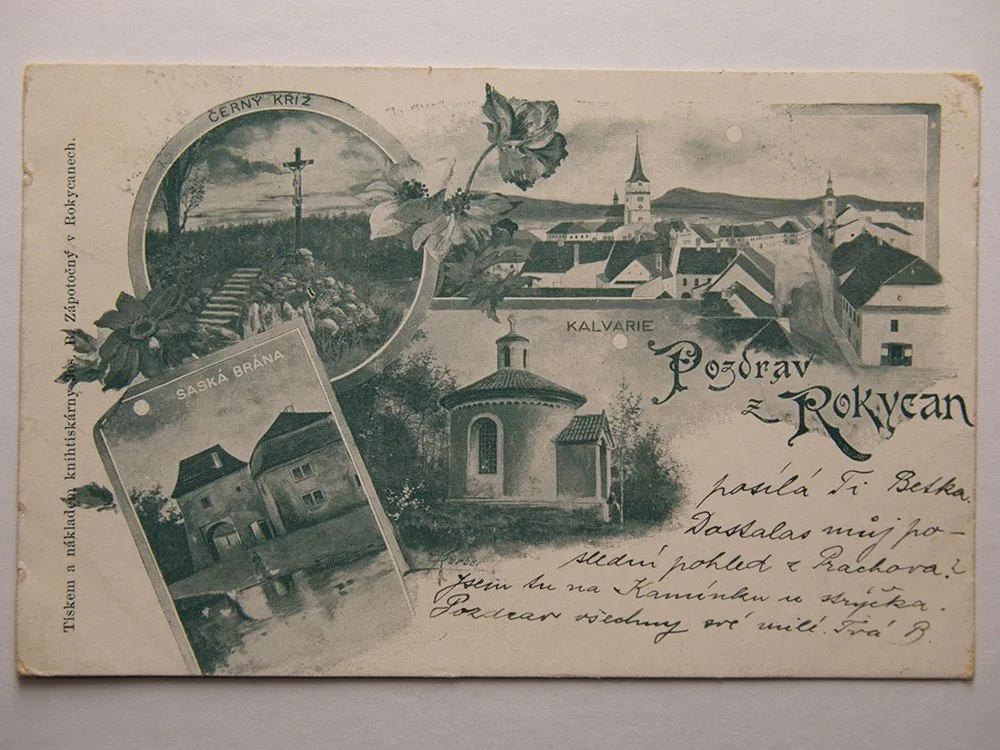 ČERNÝ KŘÍŽ
SASKÁ BRÁNA
KALVARIE
Pozdrav
z Rokycan
posílá Ti Betka.
Dostalas můj po-
slední pohled z Prachova?
Jsem tu na Kamínku u strýčka.
Pozdrav všechny své milé. Tvá B.
Tiskem a nákladem knihtiskárny Bož. Zápotočný v Rokycanech.